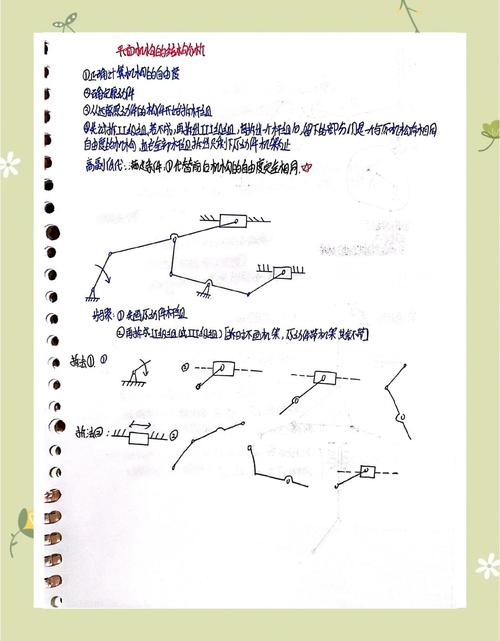 平面机构的结构分析
①正确计算机构的自由度
②确定原动件
③从远离原动件的构件开始拆杆组
④先试拆Ⅱ级组,若不成,再拆Ⅲ级组,每拆出一个杆组后,留下的部分仍是一个与原机构有相同
自由度的机构,直至全部杆组拆出只剩下原动件机架止
高副低代:满足条件:①代替前后机构的自由度完全相同.☆
步骤:①先画原动件杆组
②再拆Ⅱ级组(或Ⅲ级组)[拆时不画机架,原动件带机架其余不带]
拆法①: ①
②
拆法②: ②